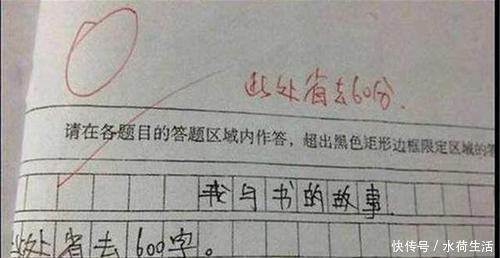 此处省去60分.
请在各题目的答题区域内作答，超出黑色矩形边框限定区域的答
我与书的故事
此处省去600字。
快传号/水荷生活